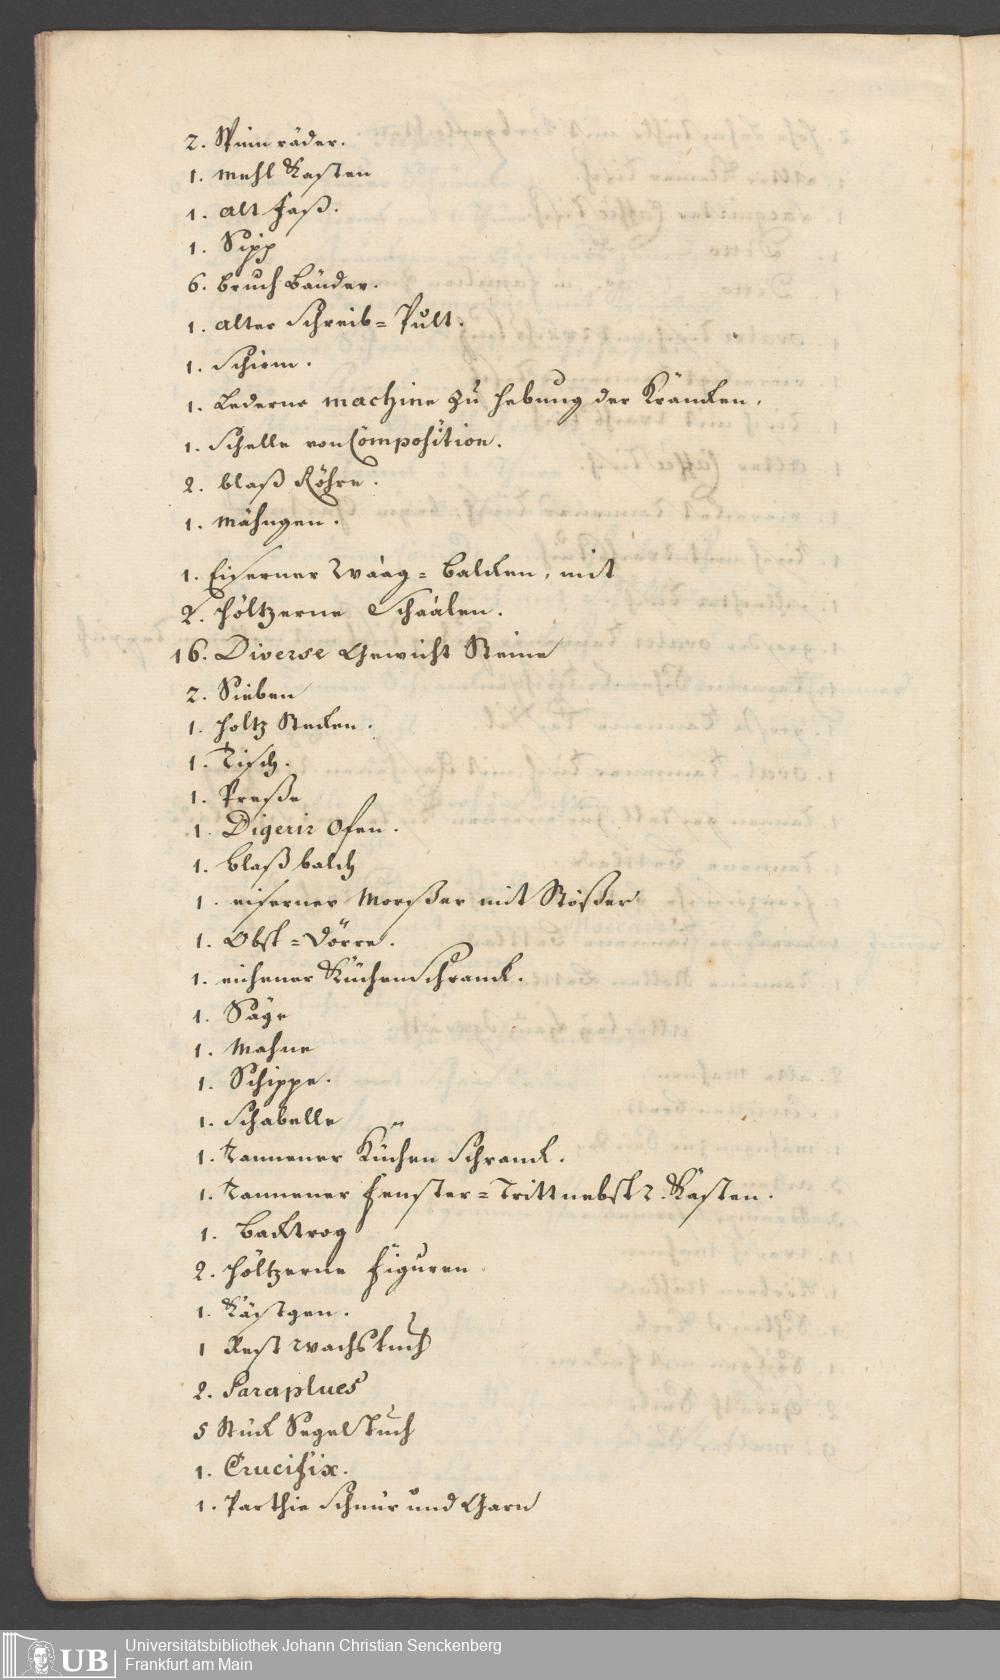 2. Spinn räder.
1. Mehl Kasten
1. alt Faß.
1. Sipp
6. bruch bänder.
1. alter Schreib= Pult.
1. Schirm.
1. Lederne machine zu hebung der Krancken.
1. Schelle von Composition.
2. blaß Röhre.
1. Mähngen.
1. Eiserner Waag= balcken, mit
2. höltzerne Schaalen.
16. Diverse Gewicht Steine
2. Sieben
1. holtz Stecken.
1. Tisch.
1. Preße
1. Digerir Ofen.
1. blaß balch
1. eiserner Morßer mit Stößer
1. Obst= Dörre.
1. eichener Küchen Schranck.
1. Säge
1. Mahne
1. Schippe.
1. Schabelle
1. tannener Küchen Schranck.
1. tannener Fenster= Tritt nebst 2. Kästen.
1. backtrog
2. höltzerne Figuren
1. Kästgen.
1 Rest Wachstuch
2. Paraplues
5 Stück Segel Tuch
1. Crucifix.
1. Parthie Schnür und Garn
UB Universitätsbibliothek Johann Christian Senckenberg
Frankfurt am Main